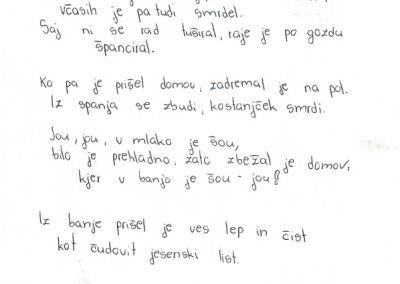 včasih je pa tudi smrdel.
Saj ni se rad tuširal, raje je po gozdu
španciral.
Ko pa je prišel domov, zadremal je na pol.
Iz spanja se zbudi, kostanjček smrdi.
Jou, jou, v mlako je šou,
bilo je prehladno, zato zbežal je domov,
kjer v banjo je šou - jou!
Iz banje prišel je ves lep in čist
kot čudovit jesenski list.